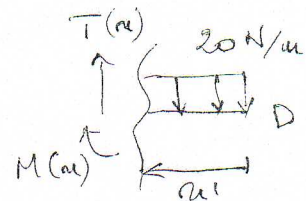 T(x)
20 N/m
D
M(x)
x'